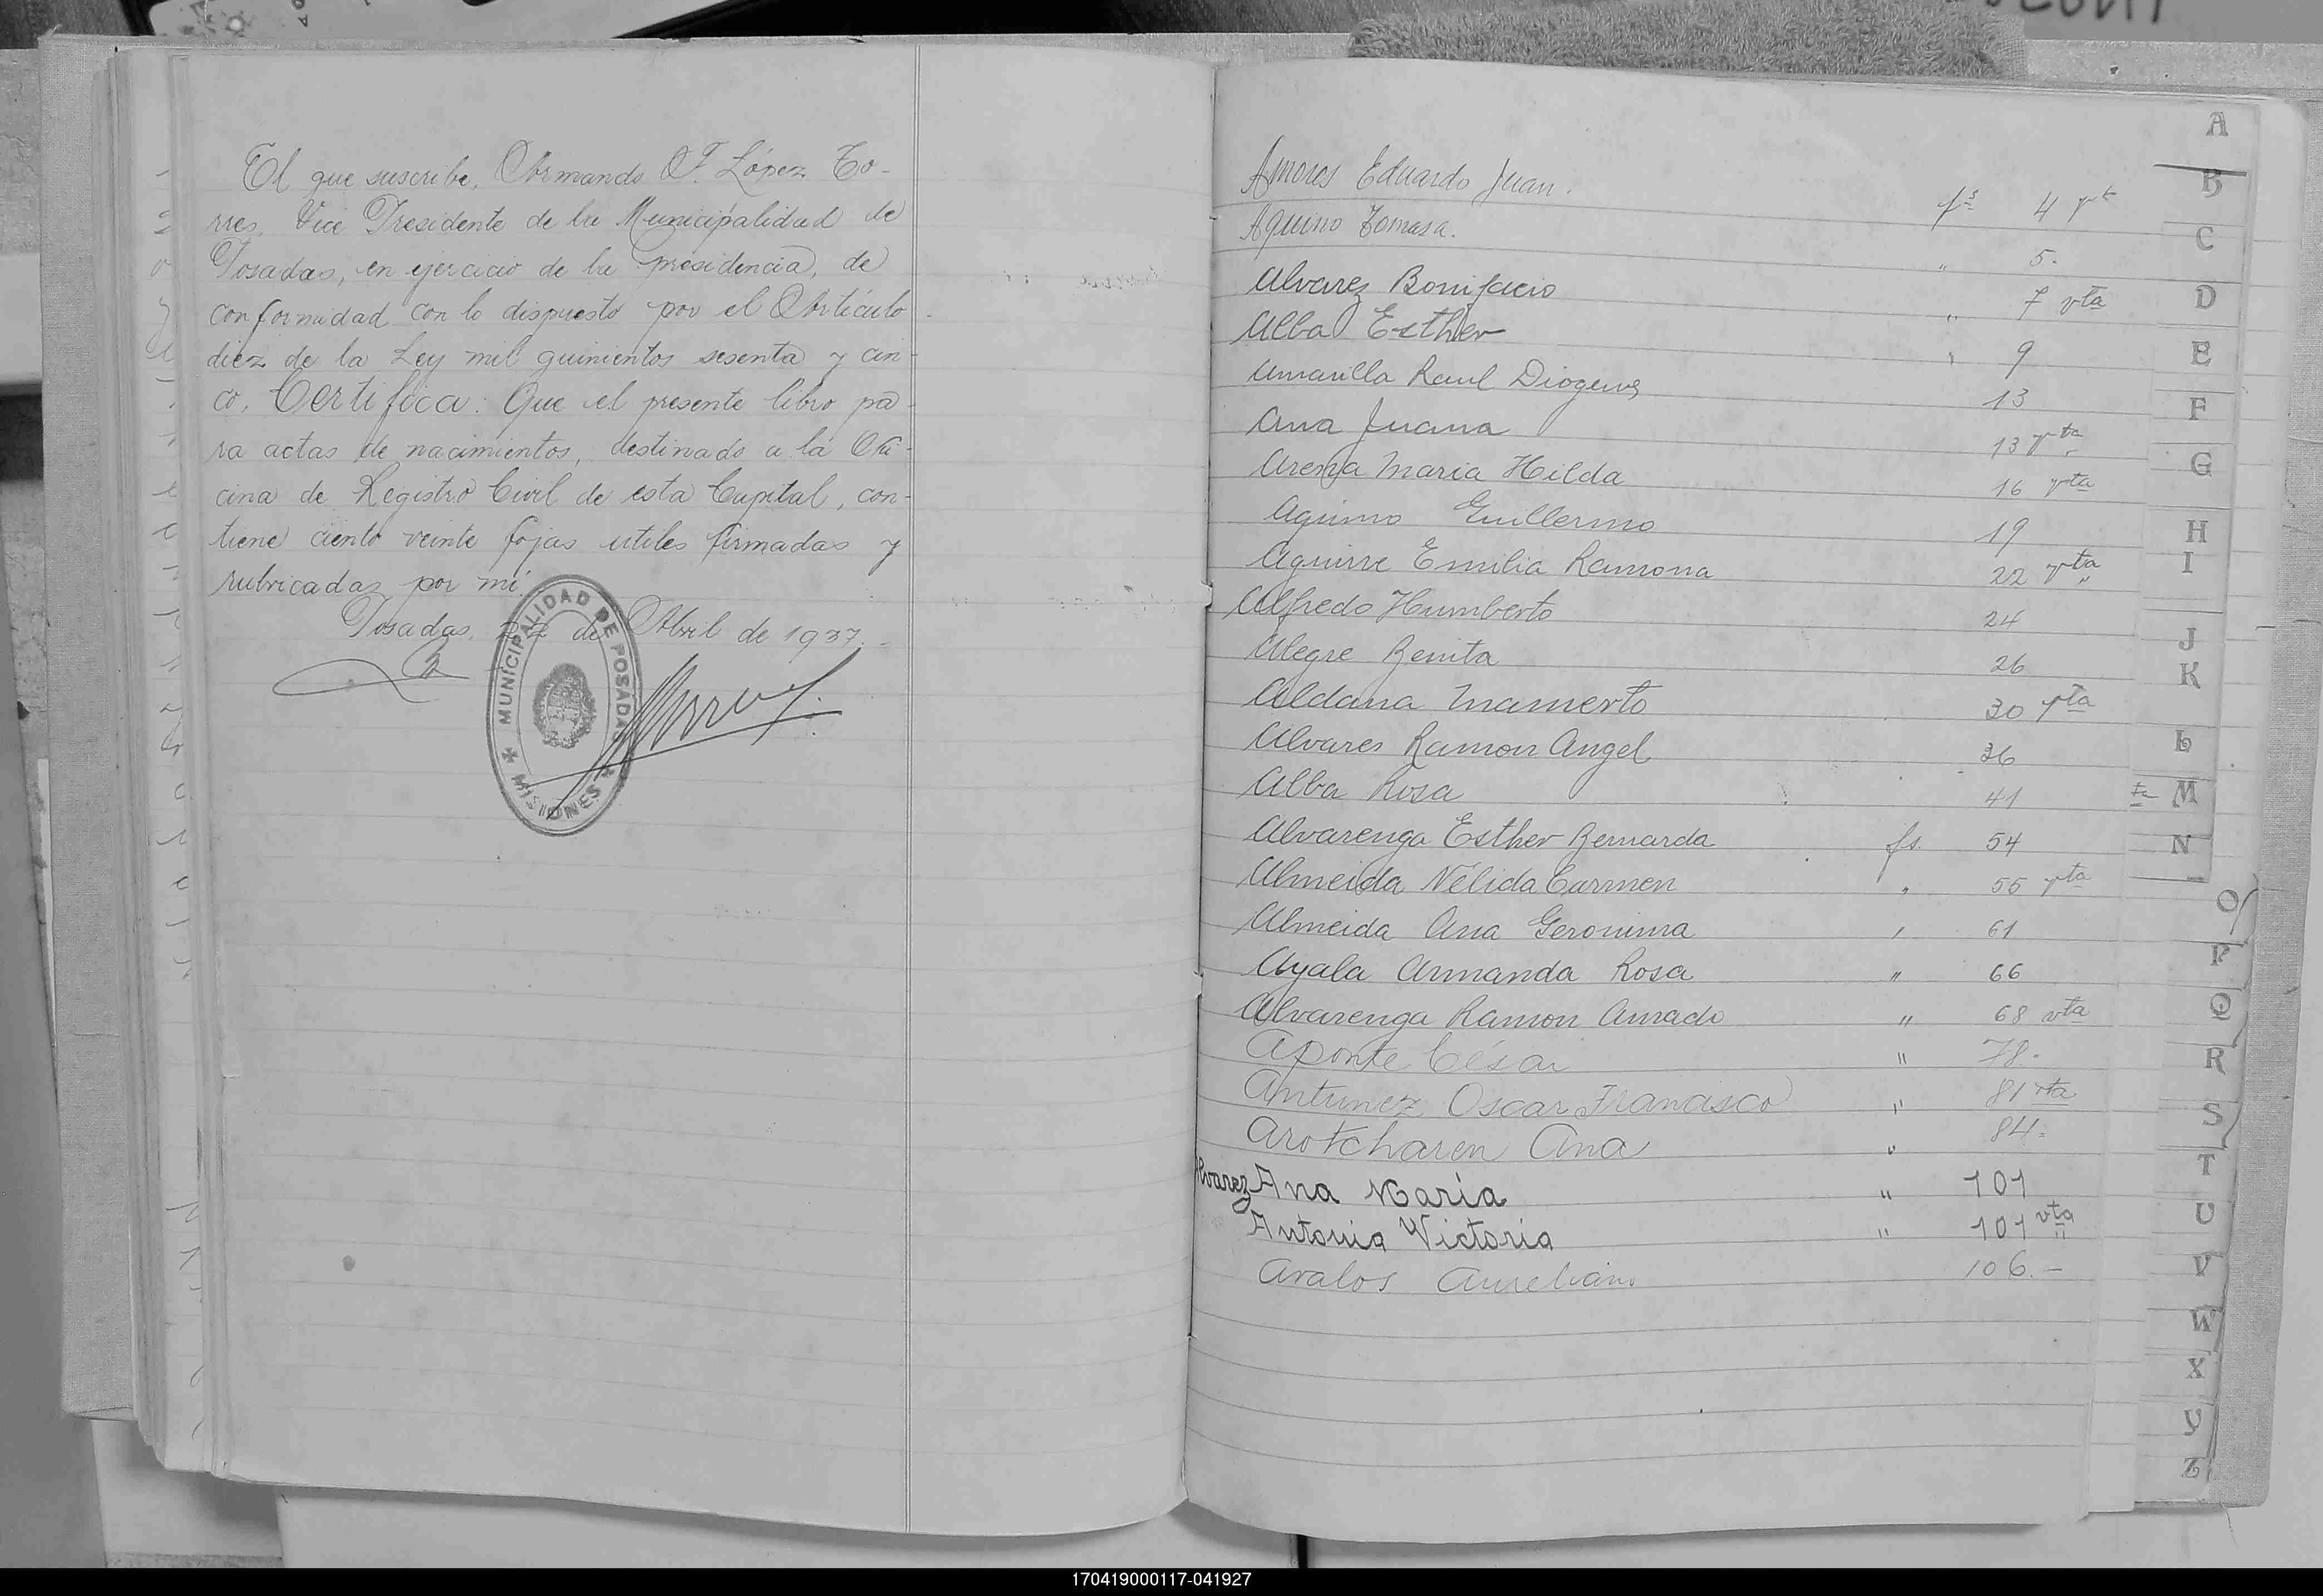 El que suscribe, Armando A. F. López To-
rres, Vice Presidente de la Municipalidad de
Posadas, en ejercicio de la presidencia, de
conformidad con lo dispuesto por el Artículo
diez de la Ley mil quinientos sesenta y cin-
co, Certifica: Que el presente libro pa-
ra actas de nacimientos, destinado a la Ofi-
cina de Registro Civil de esta Capital, con-
tiene ciento veinte fojas utiles firmadas y
rubricadas por mi
Posadas, de Abril de 1937.-
MUNICIPALIDAD DE POSADAS
MISIONES
Amores Eduardo Juan. fs 4 vt
Aquino Tomasa. " 5.
Alvarez Bonifacio " 7 vta
Alba Esther " 9
Amarilla Raul Diogenes 13
Ana Juana 13 vta
Arena Maria Hilda 16 vta
Aquino Guillermo 19
Aguirre Emilia Ramona 22 vta
Alfredo Humberto 24
Alegre Benita 26
Aldana Mamerto 30 vta
Alvares Ramon Angel 36
Alba Rosa 41
Alvarenga Esther Bernarda fs. 54
Almeida Nélida Carmen " 55 vta
Almeida Ana Geronima " 61
Ayala Armanda Rosa " 66
Alvarenga Ramon Amado " 68 vta
Aponte César " 78.
Antunez Oscar Francisco " 81 vta
Arotcharen Ana " 84.
Alvarez Ana Maria " 101
Antonia Victoria " 101 vta
Avalos Aureliano 106.-
A
B
C
D
E
F
G
H
I
J
K
L
M
N
O
P
Q
R
S
T
U
V
W
X
Y
Z
170419000117-041927